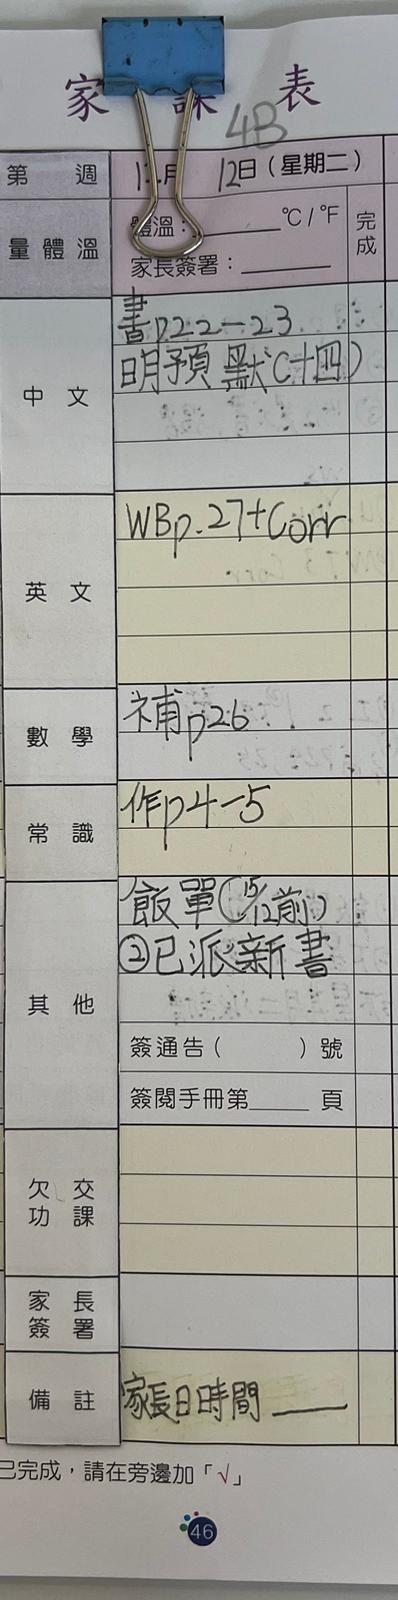 家課表
4B
第 週 12月 12日(星期二)
量體溫 體溫:______°C/°F 完成
家長簽署:______
中文 書p22-23
明預默(十四)
英文 WBp.27+Corr
數學 補p26
常識 作p4-5
其他 飯單(15/12前)
②已派新書
簽通告( )號
簽閱手冊第____頁
欠交功課
家長簽署
備註 家長日時間______
已完成,請在旁邊加「√」
46